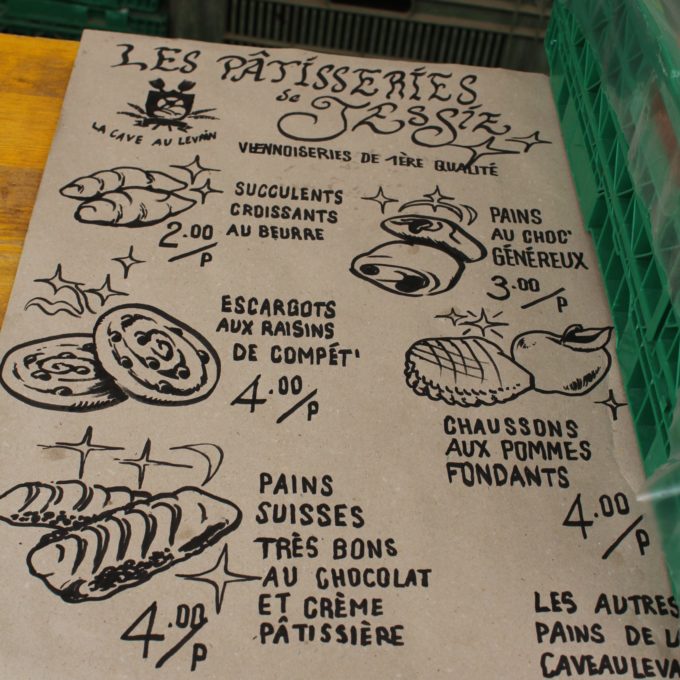 LES PÂTISSERIES
de JESSIE
LA CAVE AU LEVAIN
VIENNOISERIES DE 1ÈRE QUALITÉ
SUCCULENTS
CROISSANTS
AU BEURRE
2.00/P
PAINS
AU CHOC'
GÉNÉREUX
3.00/P
ESCARGOTS
AUX RAISINS
DE COMPÉT'
4.00/P
CHAUSSONS
AUX POMMES
FONDANTS
4.00/P
PAINS
SUISSES
TRÈS BONS
AU CHOCOLAT
ET CRÈME
PÂTISSIÈRE
4.00/P
LES AUTRES
PAINS DE L
CAVEAULEVA